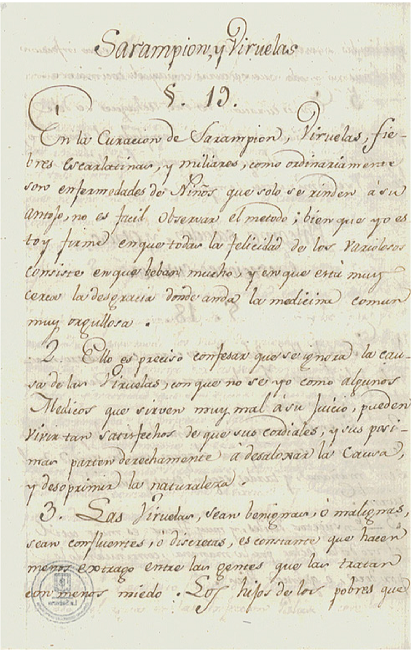 Sarampion, y Viruelas
§. 19.
En la Curacion de Sarampion, Viruelas, fie-
bres escarlatinas, y miliares, como ordinariamente
son enfermedades de Niños que solo se rinden á su
antojo, no es facil observar el metodo; bien que yo es
toy firme en que toda la felicidad de los variolosos
consiste en que beban mucho, y en que está muy
cerca la desgracia donde anda la medicina comun
muy orgullosa.
2. Ello es preciso confesar que se ignora la cau-
sa de las Viruelas, con que no se yo como algunos
Medicos que sirven muy mal á su juicio, pueden
vivir tan satisfechos de que sus cordiales, y sus posi-
mas parten derechamente á desaloxar la Causa,
y desoprimir la naturaleza.
3. Las Viruelas, sean benignas, ó malignas,
sean confluentes, ó discretas, es constante que hacen
menos extrago entre las gentes que las tratan
con menos miedo. Los hijos de los pobres que